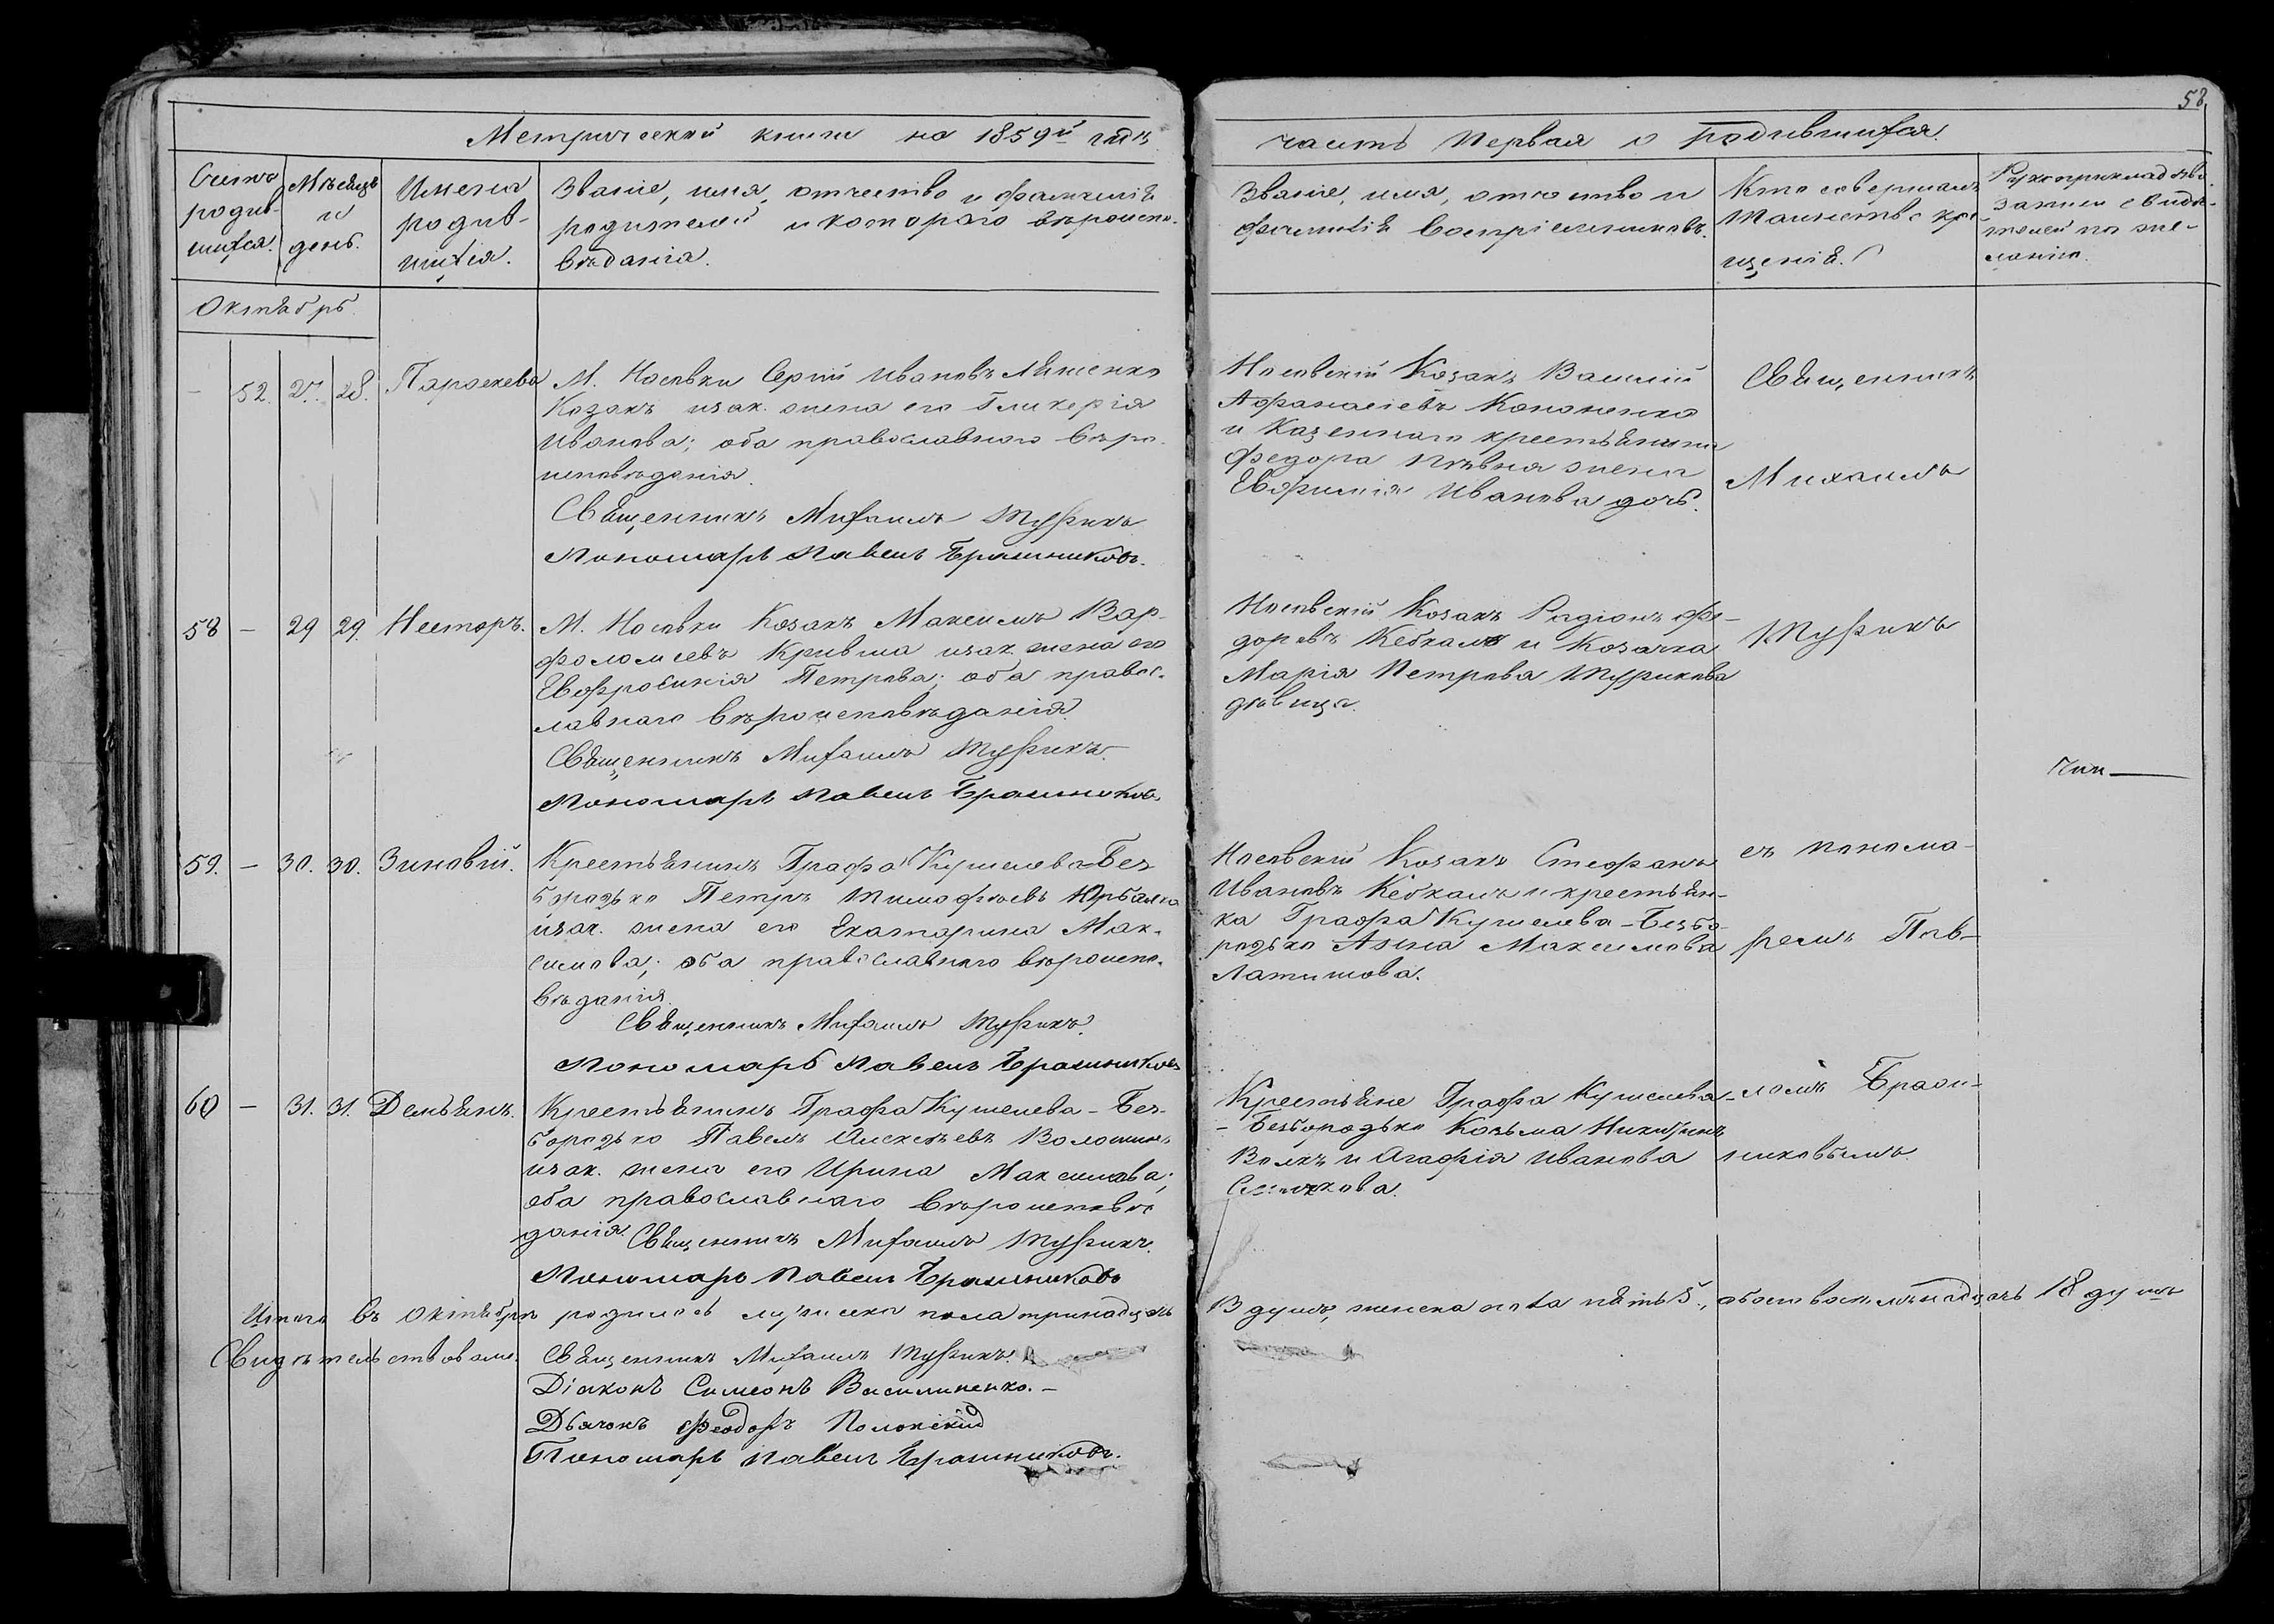 58
Метрической книги на 1859й годъ
часть первая о родившихся.
Счетъ родив-шихся.
Мѣсяцъ и день.
Имена родив-шихся.
Званіе, имя, отчество и фамилія
родителей и котораго вѣроиспо-
вѣданія.
Званіе, имя, отчество и
фамилія воспріемниковъ.
Кто совершалъ
таинство кре-
щенія.
Рукоприкладство
записи свидѣ-
телей по же-
ланію.
Октябрь.
– 52. 27. 28. Параскева
М. Носовки Сергій Ивановъ Ляшенко
Козакъ изак. жена его Гликерія
Иванова; оба православнаго вѣро-
исповѣданія.
Священникъ Михаилъ Турикъ
Пономарь Павелъ Брашниковъ.
Носовскій Козакъ Василій
Афанасіевъ Кононенко
и Казеннаго крестьянина
Федора жена
Евфимія Иванова дочь.
Священникъ
Михаилъ
58 – 29 29. Несторъ.
М. Носовки Козакъ Максимъ Вар-
фоломеевъ Кривша изак. жена его
Евфросинія Петрова; оба правос-
лавнаго вѣроисповѣданія.
Священникъ Михаилъ Турикъ.
Пономарь Павелъ Брашниковъ
Носовскій Козакъ Родіонъ Фе-
доровъ Кебкалъ и Козачка
Марія Петрова Турикова
дѣвица.
Турикъ
59. – 30. 30. Зиновій.
Крестьянинъ Графа Кушелева-Без-
бородько Петръ Тимофѣевъ
изак. жена его Екатерина Мак-
симова; оба православнаго вѣроиспо-
вѣданія.
Священникъ Михаилъ Турикъ.
Пономарь Павелъ Брашниковъ
Носовскій Козакъ Стефанъ
Ивановъ Кебкалъ и крестьян-
ка Графа Кушелева-Безбо-
родько Анна Максимова
Латишова.
съ понома-
ремъ Пав-
60 – 31. 31. Демьянъ.
Крестьянинъ Графа Кушелева-Без-
бородько Павелъ Алексѣевъ Волошинъ
изак. жена его Ирина Максимова;
оба православнаго вѣроисповѣ-
данія. Священникъ Михаилъ Турикъ.
Пономарь Павелъ Брашниковъ
Крестьяне Графа Кушелева-
-Безбородько Козьма Никитинъ
Волкъ и Агафія Иванова
ломъ Браш-
никовымъ.
Итого въ Октябрѣ родилось мужеска пола тринадцать
13 душъ, женска пола пять 5., обоего восемьнадцать 18 душъ
Свидѣтельствовали:
Священникъ Михаилъ Турикъ.
Діаконъ Симеонъ Василиненко.–
Дьячокъ Феодоръ Полонскій
Пономарь Павелъ Брашниковъ.